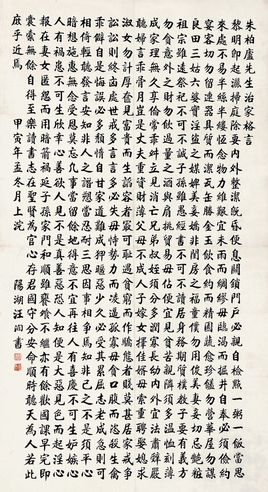 朱柏廬先生治家格言
黎明即起灑掃庭除要內外整潔既昏便息關鎖門戶必親自檢點一粥一飯當思
來處不易半絲半縷恆念物力維艱宜未雨而綢繆毋臨渴而掘井自奉必須儉約
宴客切勿留連器具質而潔瓦缶勝金玉飲食約而精園蔬愈珍饈勿營華屋勿謀
良田三姑六婆實淫盜之媒婢美妾嬌非閨房之福童僕勿用俊美妻妾切忌艷粧
祖宗雖遠祭祀不可不誠子孫雖愚經書不可不讀居身務期質樸教子要有義方
勿貪意外之財勿飲過量之酒與肩挑貿易毋佔便宜見貧苦親鄰須多溫恤刻薄
成家理無久享倫常乖舛立見消亡兄弟叔姪須分多潤寡長幼內外宜法肅辭嚴
聽婦言乖骨肉豈是丈夫重資財薄父母不成人子嫁女擇佳婿毋索重聘娶媳求
淑女勿計厚奩見富貴而生諂容者最可恥遇貧窮而作驕態者賤莫甚居家戒爭
訟訟則終凶處世戒多言言多必失毋恃勢力而凌逼孤寡毋貪口腹而恣殺生禽
乖僻自是悔誤必多頹惰自甘家道難成狎暱惡少久必受其累屈志老成急則可
相倚輕聽發言安知非人之譖愬當忍耐三思因事相爭焉知非己之不是須平心
暗想施惠無念受恩莫忘凡事當留餘地得意不宜再往人有喜慶不可生妒嫉心
人有禍患不可生欣幸心善欲人見不是真善惡恐人知便是大惡見色而起淫心
報在妻女匿怨而用暗箭禍延子孫家門和順雖饔飧不繼亦有餘歡國課早完即
囊橐無餘自得至樂讀書志在聖賢為官心存君國守分安命順時聽天為人若此
庶乎近焉
甲寅年孟冬月上浣
陽湖汪洵書